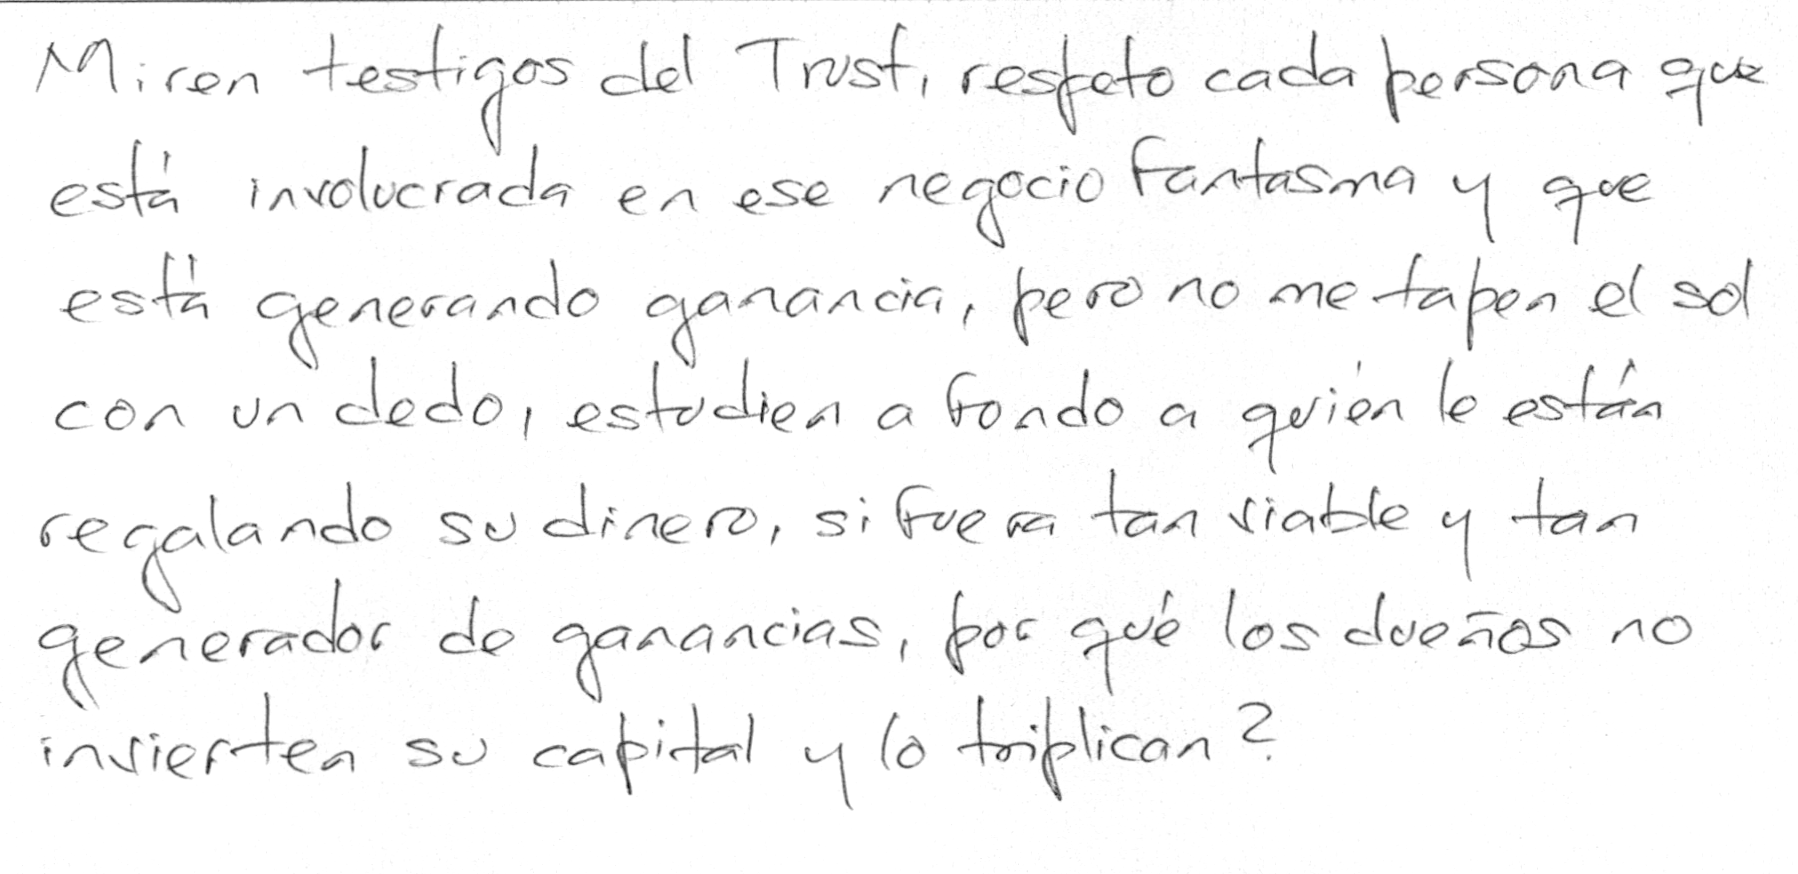 Miren testigos del Trust, respeto cada persona que
está involucrada en ese negocio fantasma y que
está generando ganancia, pero no me tapen el sol
con un dedo, estudien a fondo a quién le están
regalando su dinero, si fuera tan viable y tan
generador de ganancias, por qué los dueños no
invierten su capital y lo triplican?